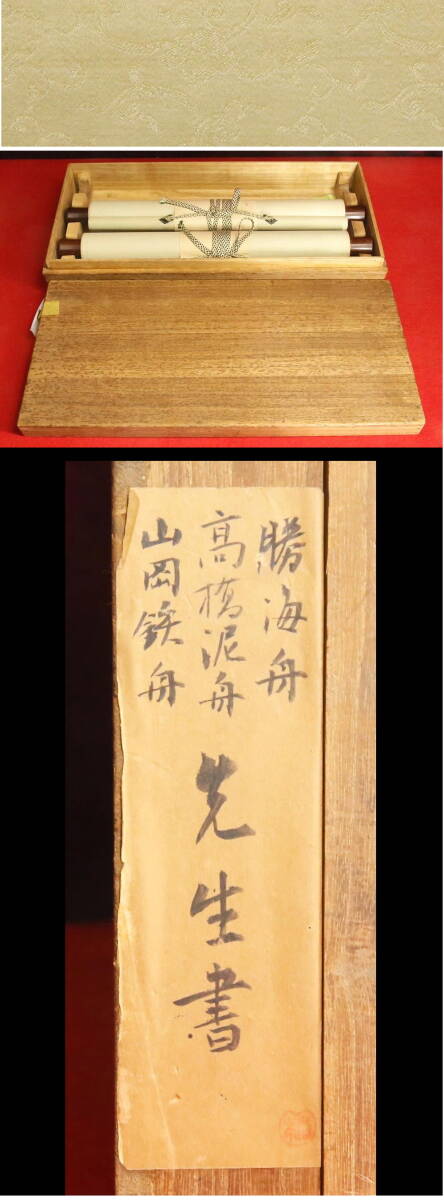 勝海舟
高橋泥舟
山岡鉄舟
先生書